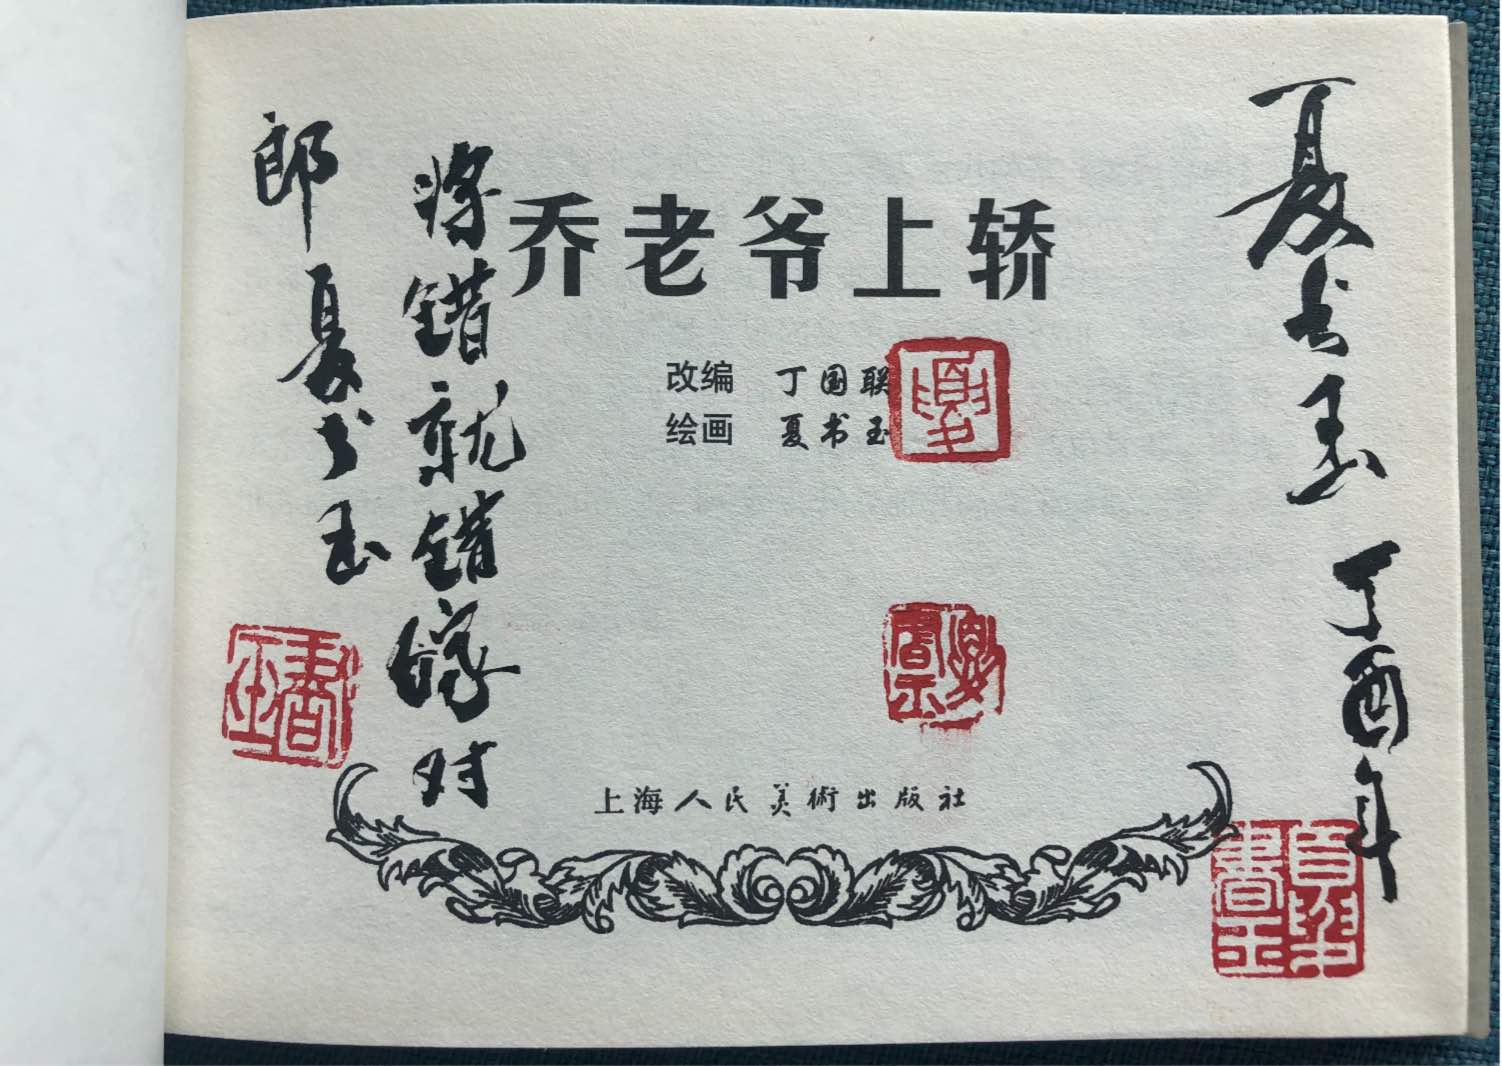 夏书玉
丁酉年
夏書玉
乔老爷上轿
改编 丁国联
绘画 夏书玉
夏
上海人民美術出版社
将错就错嫁对
郎 夏书玉
書玉